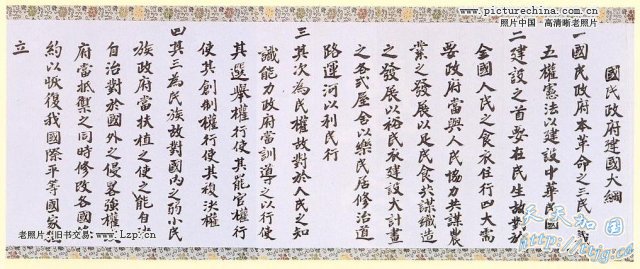 www.picturechina.com.cn
照片中国·高清晰老照片
國民政府建國大綱
一國民政府本革命之三民
五權憲法以建設中華民國
二建設之首要在民生故對於
全國人民之食衣住行四大需
要政府當與人民協力共謀農
業之發展以足民食共謀織造
之發展以裕民衣建設大計畫
之各式屋舍以樂民居修治道
路運河以利民行
三其次為民權故對於人民之知
識能力政府當訓導之以行使
其選舉權行使其罷官權行
使其創制權行使其複決權
四其三為民族故對國內之弱小民
族政府當扶植之使之能自決
自治對於國外之侵略強權
府當抵禦之同時修改各國
約以恢復我國際平等國家
立
老照片·旧书交易 www.Lzp.cn
天天加国
http://ttjg.ca